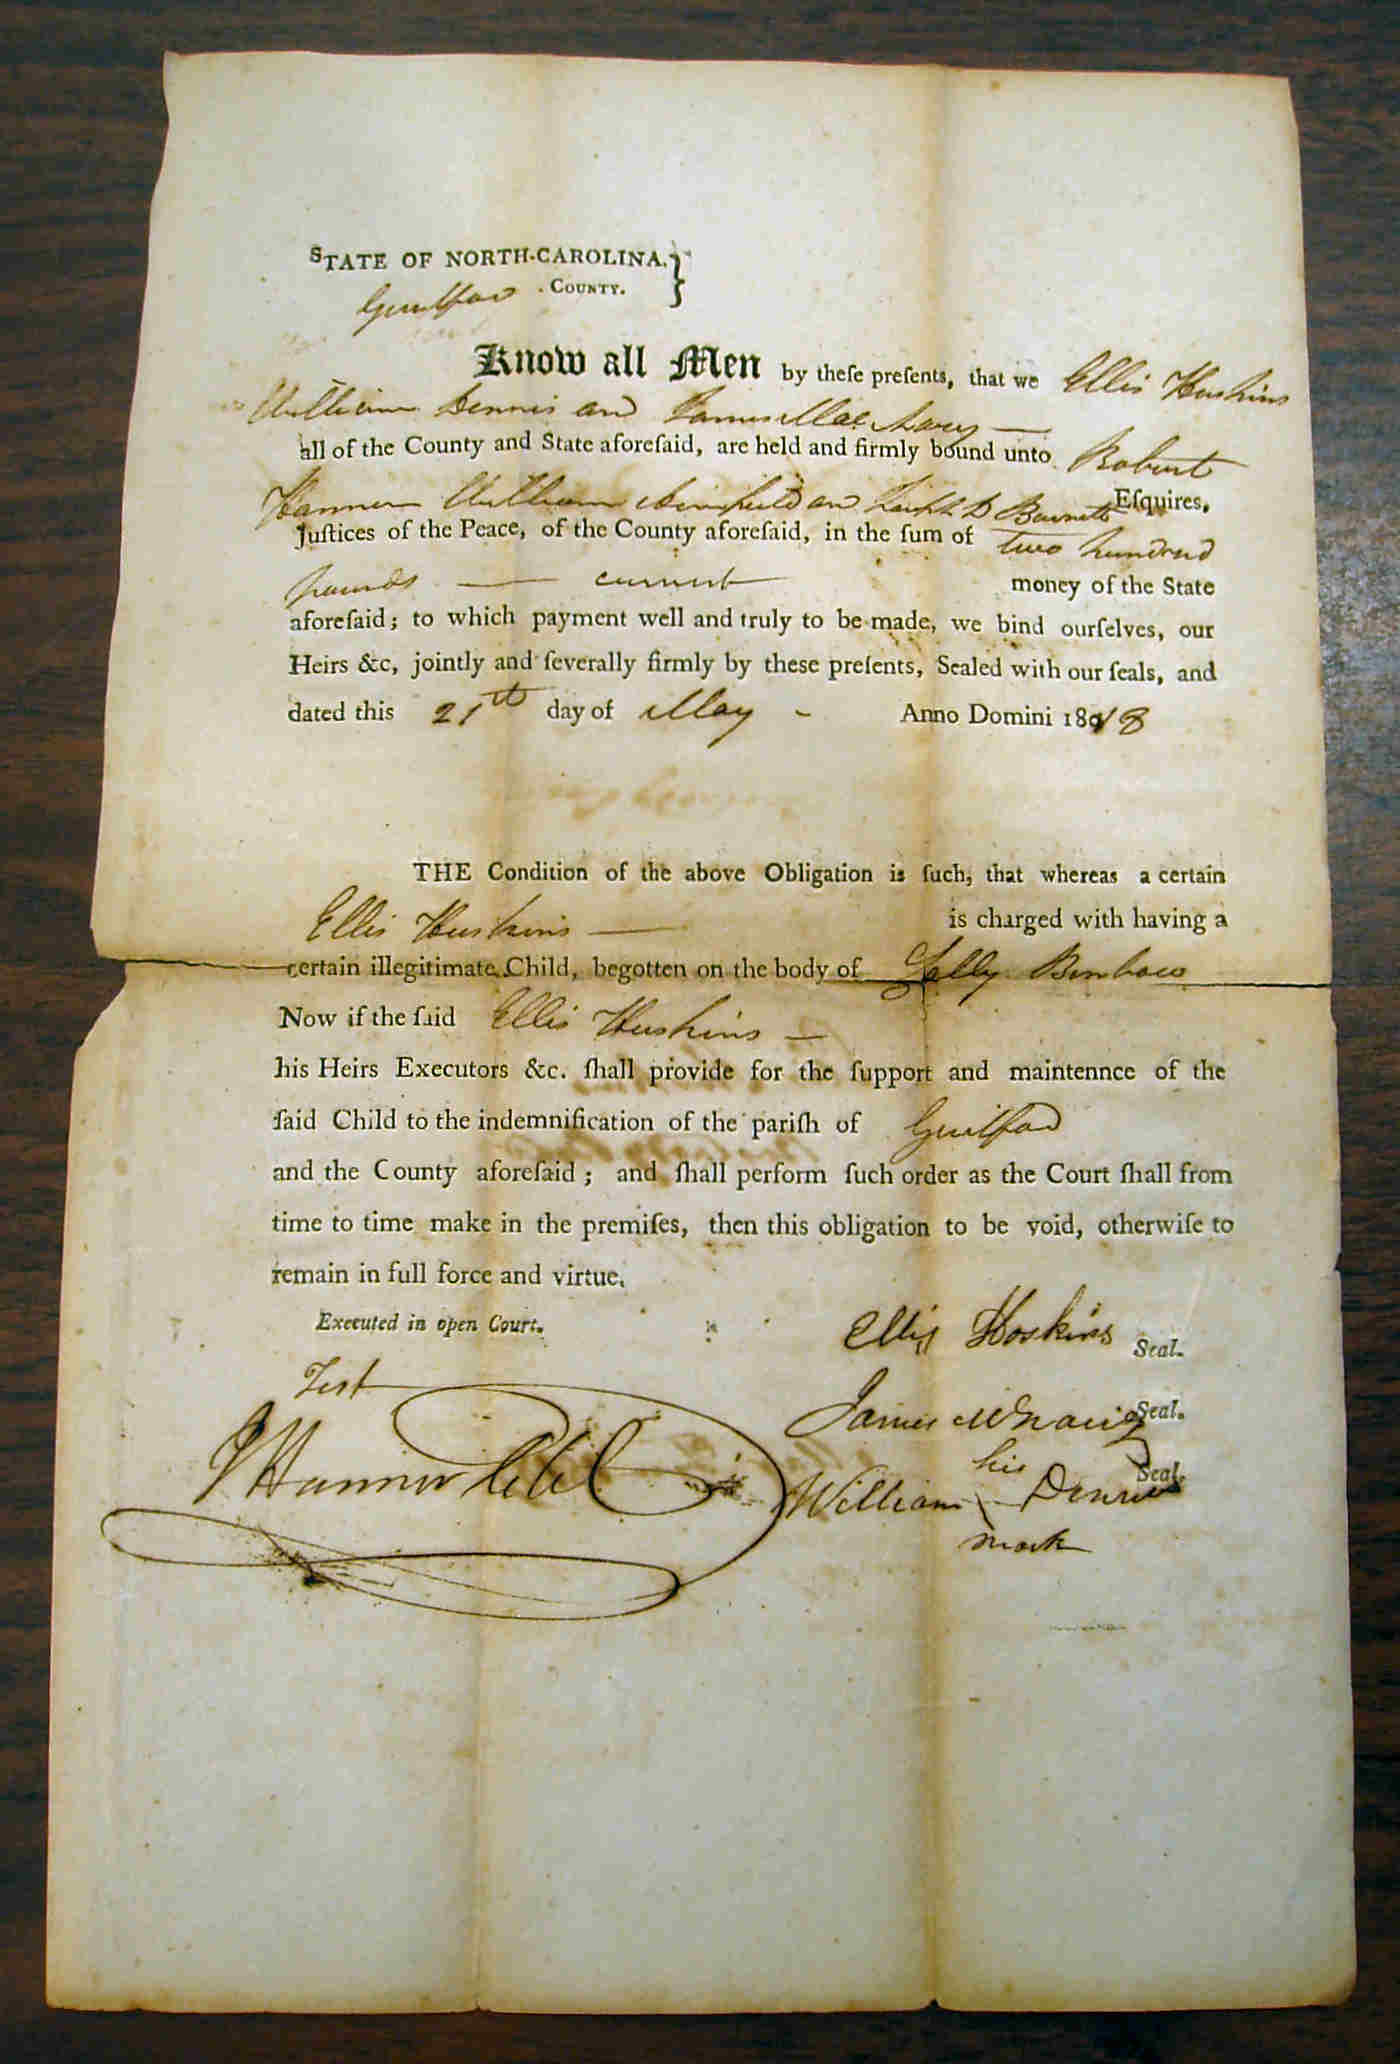 STATE OF NORTH-CAROLINA, }
Guilford County.
Know all Men by theſe preſents, that we Ellis Huskins
William Dennis and James Mac
all of the County and State aforeſaid, are held and firmly bound unto Robert
Hanner William and Joseph D Barnett Eſquires,
Juſtices of the Peace, of the County aforeſaid, in the ſum of two hundred
pounds — current money of the State
aforeſaid; to which payment well and truly to be made, we bind ourſelves, our
Heirs &c, jointly and ſeverally firmly by these preſents, Sealed with our ſeals, and
dated this 21th day of May - Anno Domini 1818
THE Condition of the above Obligation is ſuch, that whereas a certain
Ellis Huskins — is charged with having a
certain illegitimate Child, begotten on the body of Solly Benbow
Now if the ſaid Ellis Huskins —
his Heirs Executors &c. ſhall provide for the ſupport and maintennce of the
ſaid Child to the indemnification of the pariſh of Guilford
and the County aforeſaid; and ſhall perform ſuch order as the Court ſhall from
time to time make in the premiſes, then this obligation to be void, otherwiſe to
remain in full force and virtue.
Executed in open Court.
Ellis Hoskins Seal.
Test
James Seal.
Hanner
his
William Dennis Seal.
mark